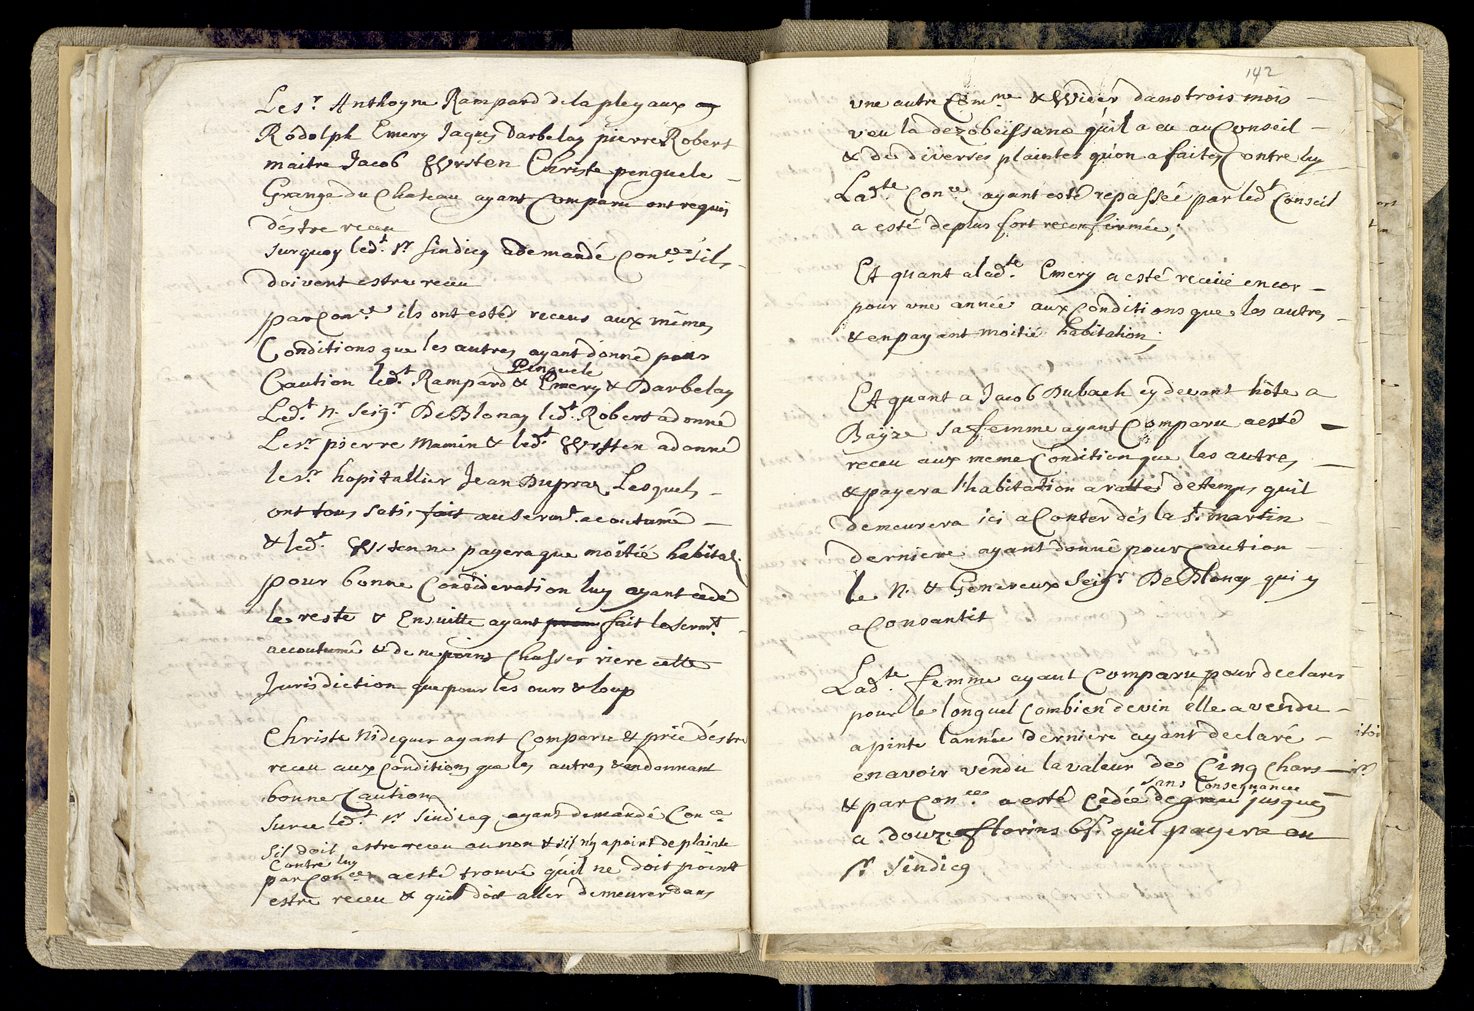 Le Sr Anthoyne Rampard de la pleyaux
Rodolph Emery Jaques Darbelay pierre Robert
maitre Jacob Wrsten Christe penguele
Grange du Chateau ayant Comparu ont requis
déstre receu
surquoy ledt Sr Sindicq ademandé Conce sils
doivent estre receu
par Conce ils ont estéz receus aux mêmes
Conditions que les autres ayant donné pour
Pinguele
Caution ledt Rampard & Emery & Darbelay
Ledt N. Seigr De Blonay ledt Robert a donné
Le Sr pierre mamin & ledt Wrsten a donné
le Sr hopitallier Jean Dupraz Lesquels
ont tous satisfait au Sermt acoutumé
& ledt Wrsten ne payera que moitié habitaõn
pour bonne Consideration luy ayant cedé
le reste & Ensuitte ayant fait le Sermt
accoutumé & de ne point Chasser riere cette
Jurisdiction que pour les ours & loup
Christe Nidequer ayant Comparu & prié déstre
receu aux Conditions que les autres & en donnant
bonne Caution
Sur ce ledt Sr Sindicq ayant demandé Conce
Sil doit estre receu au non & sil ny a point de plainte
Contre luy
par Conces a esté trouvé quil ne doit point
estre receu & quil doit aller demeurer dans
142
une autre Cõmne & Wider dans trois mois
veu la dezobeissance quil a eu au Conseil
& des diverses plaintes quon a faites Contre luy
Ladte Conce ayant esté repassée par ledt Conseil
a esté de plus fort reconfirmée;
Et quant a ladte Emery a esté receüe encor
pour une année aux Conditions que les autres
& en payant moitié habitation;
Et quant a Jacob Dubach cy devant hôte a
Bayze sa femme ayant Comparu a esté
receu aux meme Condition que les autres
& payera l'habitation a rattes de temps quil
demeurera ici a Conter dés la St martin
derniere ayant donné pour Caution
le N. & Genereux Seigr De Blonay qui y
a Consantit
Ladte femme ayant Comparu pour declarer
pour le longuel Combien de vin elle a vendu
a pinte l'année derniere ayant declaré
en avoir vendu la valeur de Cinq Chars
sans Consequance
& par Conces a esté Cedée de grace jusques
a douze florins 6 s. quil payera au
Sr Sindicq